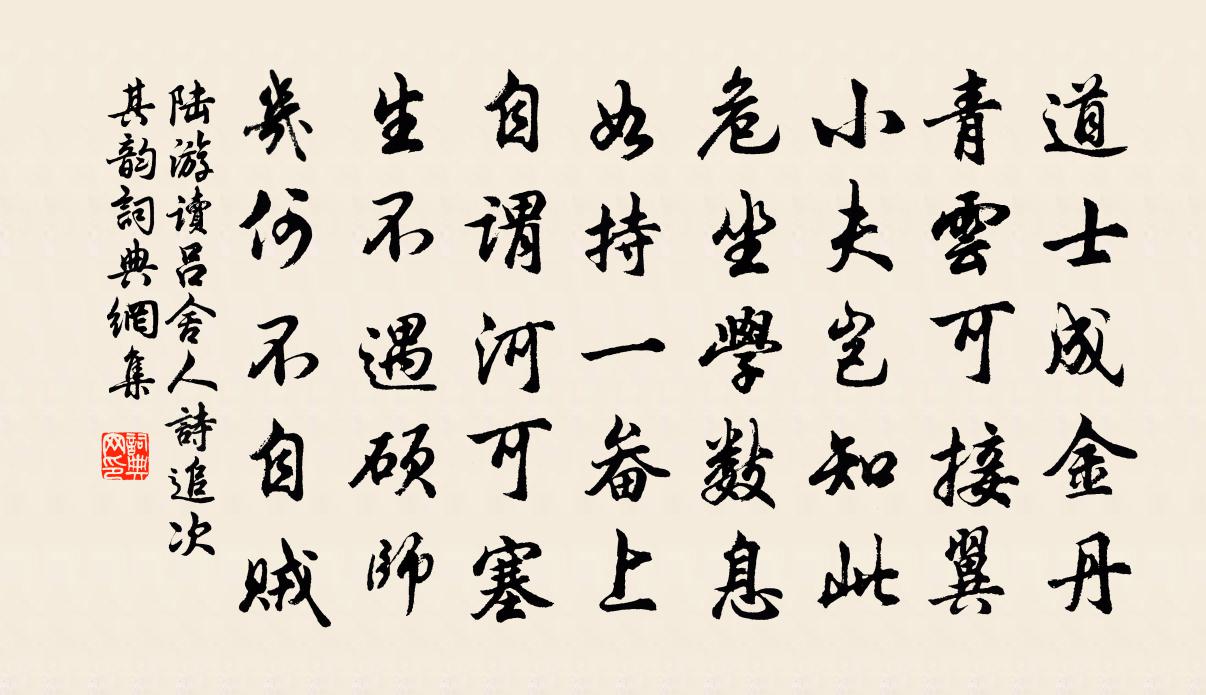 道士成金丹
青雲可接翼
小夫岂知此
危坐學数息
如持一畚土
自谓河可塞
生不遇硕師
幾何不自贼
陆游讀吕舍人詩追次
其韵詞典網集
詞典网印